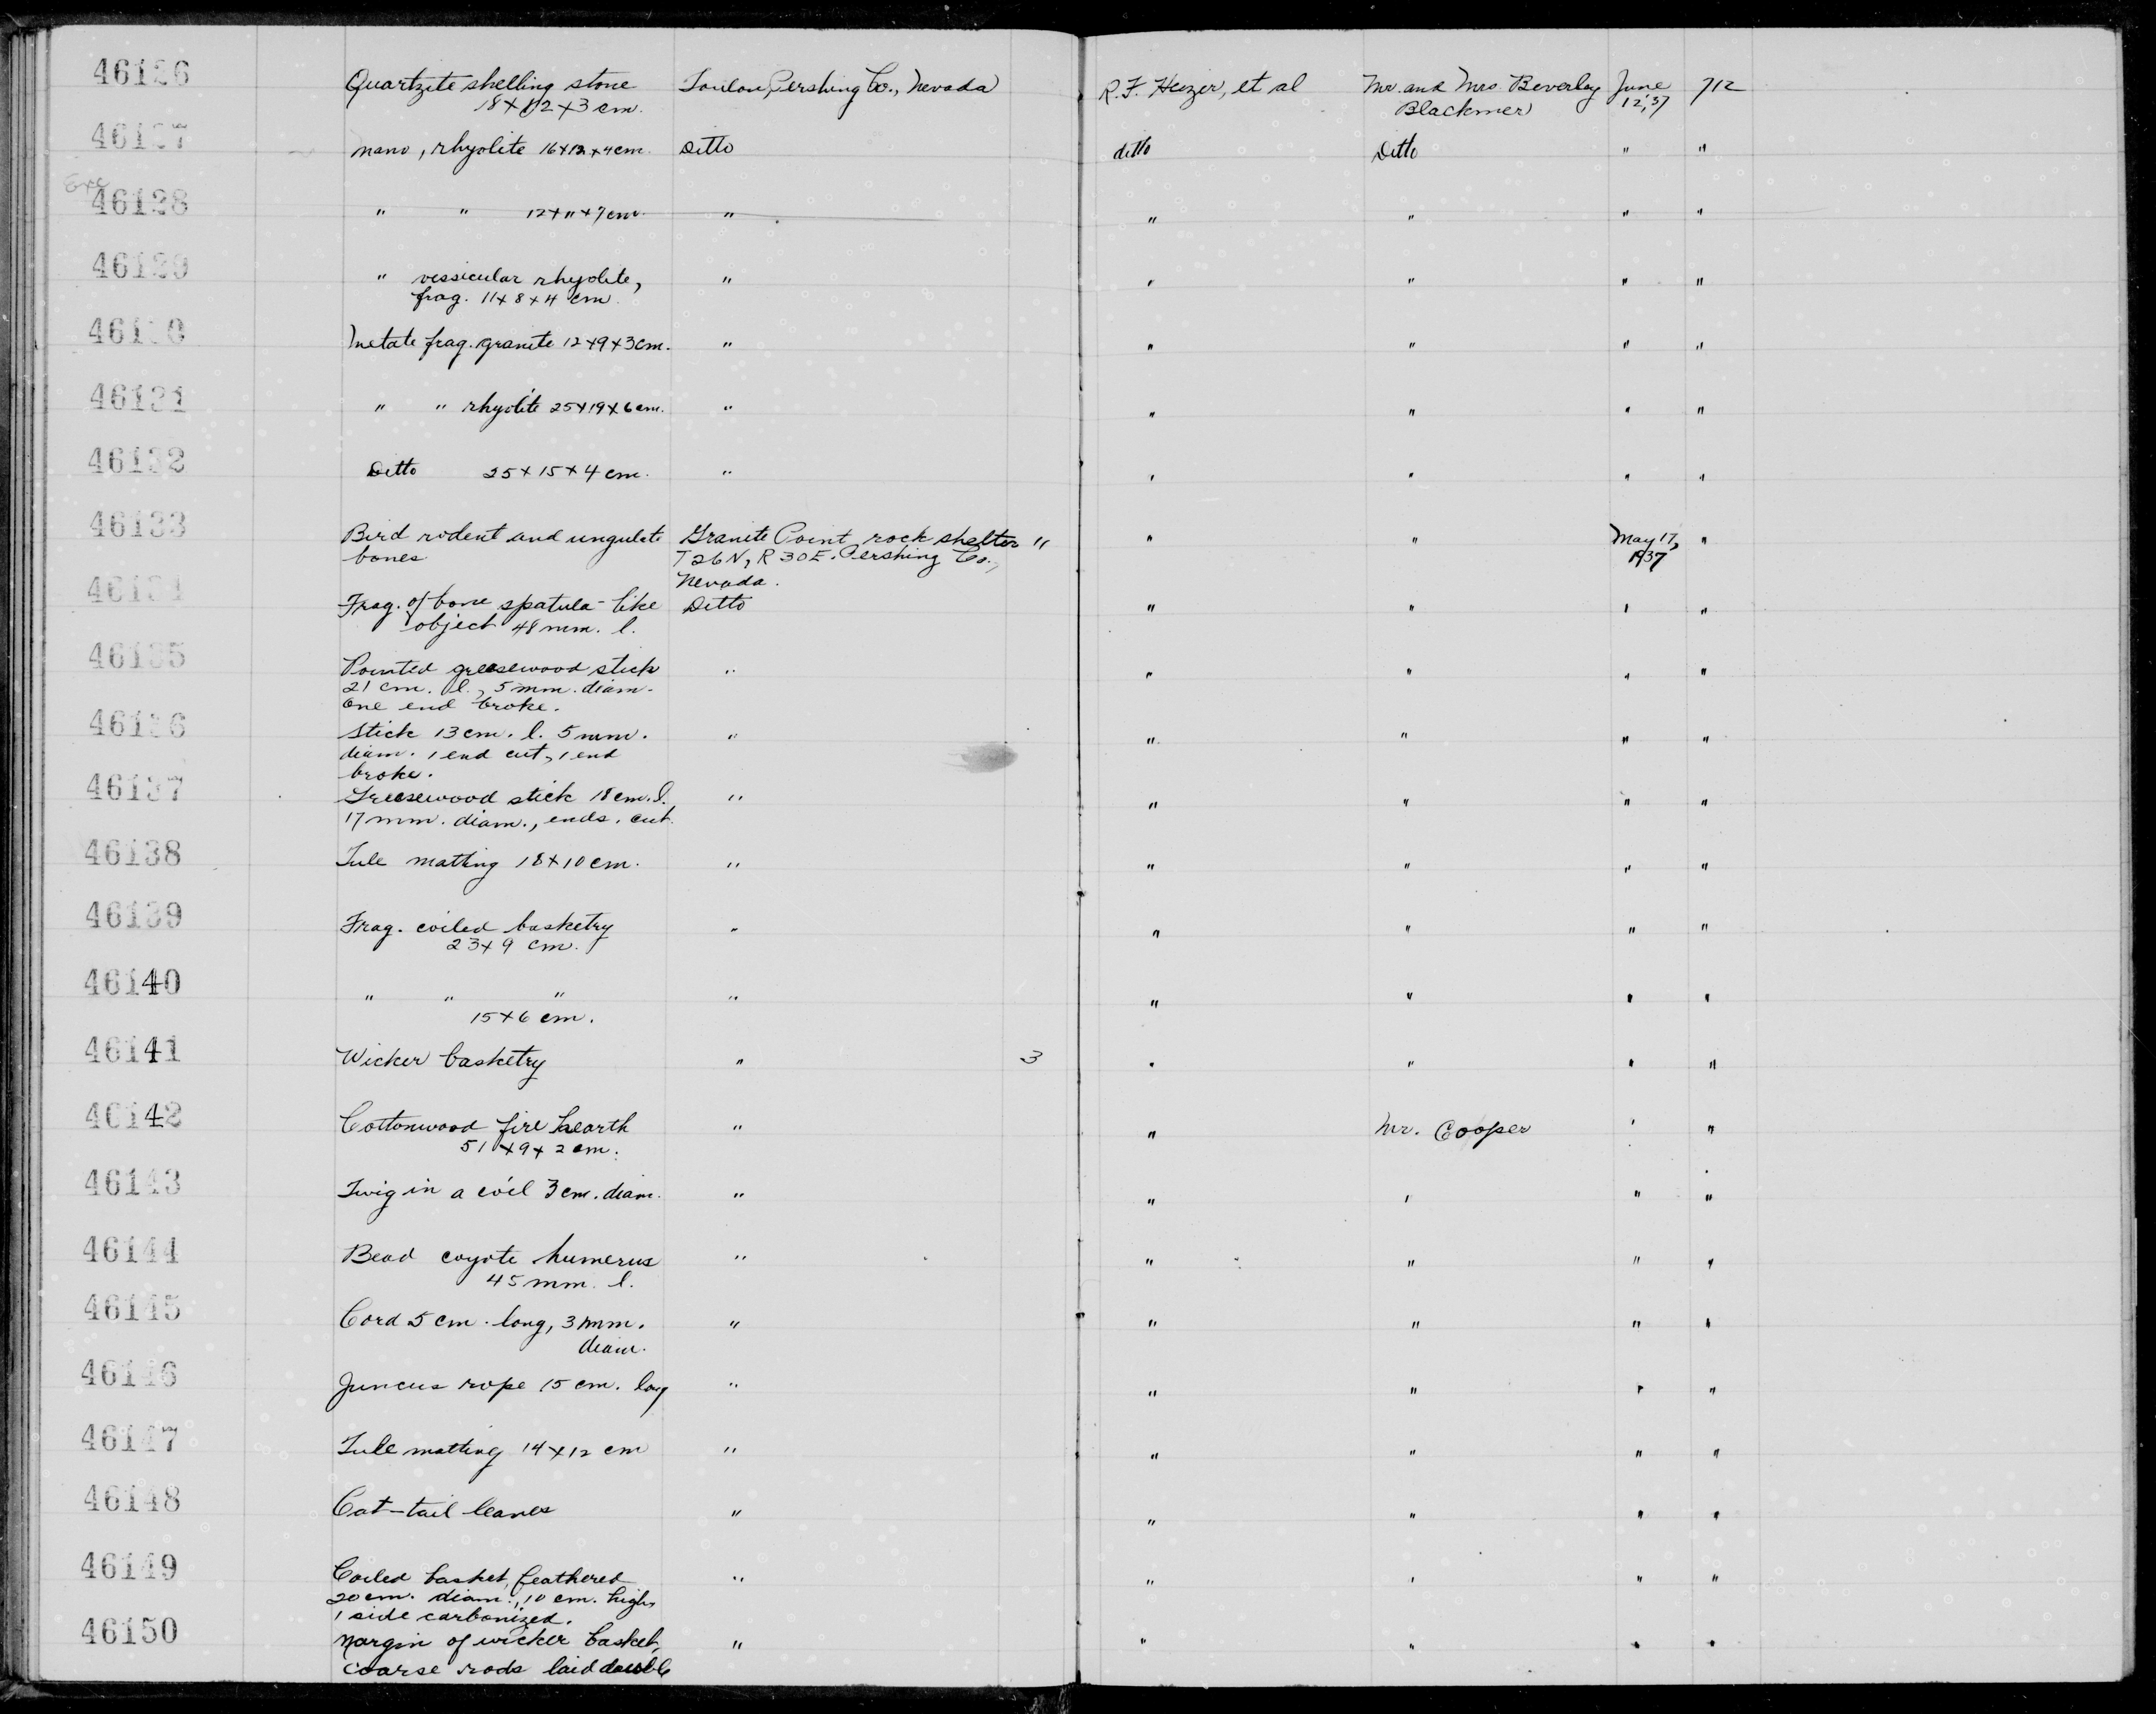 46126 Quartzite shelling stone Toulon, Pershing Co., Nevada R. F. Heizer, et al Mr. and Mrs. Beverley June 712
18 x 12 x 3 cm. Blackmer 12, '37
46127 Mano, rhyolite 16x12x4cm. Ditto ditto Ditto " "
Exc
46128 " " 12x11x7cm. " " " " "
46129 " vessicular rhyolite, " " " " "
frag. 11x8x4 cm.
46130 Metate frag. granite 12x9x3cm. " " " " "
46131 " " rhyolite 25x19x6cm. " " " " "
46132 Ditto 25x15x4 cm. " " " " "
46133 Bird rodent and ungulate Granite Point rock shelter " " " May 17, "
bones T26N, R30E. Pershing Co., 1937
Nevada.
46134 Frag. of bone spatula-like Ditto " " " "
object 48 mm. l.
46135 Pointed greasewood stick " " " " "
21 cm. l., 5 mm. diam.
One end broke.
46136 Stick 13 cm. l. 5 mm. " " " " "
diam. 1 end cut, 1 end
broke.
46137 Greasewood stick 18cm. l. " " " " "
17 mm. diam., ends cut.
46138 Tule matting 18x10cm. " " " " "
46139 Frag. coiled basketry " " " " "
23x9 cm.
46140 " " " " " " " "
15x6 cm.
46141 Wicker basketry " 3 " " " "
46142 Cottonwood fire hearth " " Mr. Cooper " "
51x9x2cm.
46143 Twig in a coil 3 cm. diam. " " " " "
46144 Bead coyote humerus " " " " "
45 mm. l.
46145 Cord 5 cm. long, 3 mm. " " " " "
diam.
46146 Juncus rope 15 cm. long " " " " "
46147 Tule matting 14x12 cm " " " " "
46148 Cat-tail leaves " " " " "
46149 Coiled basket, feathered " " " " "
20cm. diam., 10 cm. high,
1 side carbonized.
46150 Margin of wicker basket, " " " " "
coarse rods laid double